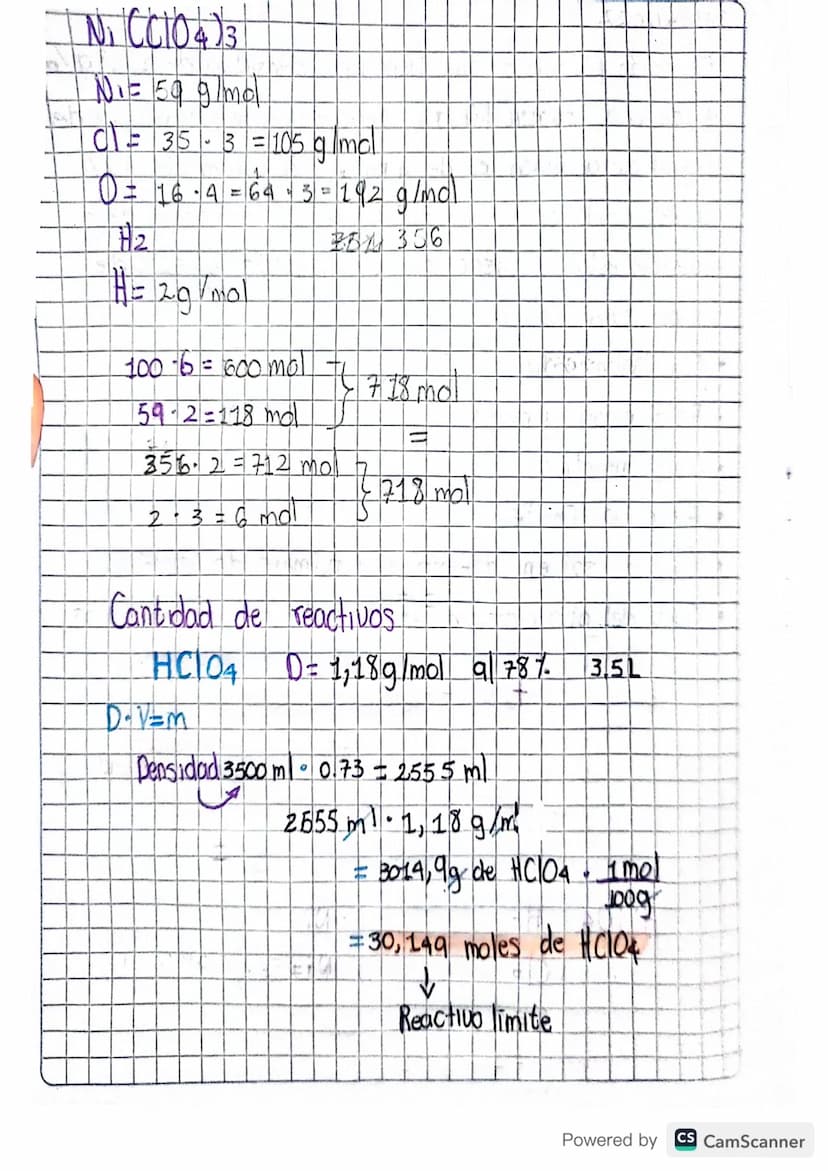 Ni (ClO4)3
Ni = 59 g/mol
Cl = 35 · 3 = 105 g/mol
O = 16 · 4 = 64 · 3 = 192 g/mol
H2 356
H = 2g/mol
100 · 6 = 600 mol
718 mol
59 · 2 = 118 mol
=
356 · 2 = 712 mol
718 mol
2 · 3 = 6 mol
Cantidad de reactivos
HClO4 D= 1,18g/mol al 78% 3,5L
D·V=m
Densidad 3500 ml · 0.73 = 2555 ml
2555 ml · 1,18 g/ml
= 3014,9g de HClO4 · 1mol
100g
= 30,149 moles de HClO4
↓
Reactivo límite
Powered by CS CamScanner